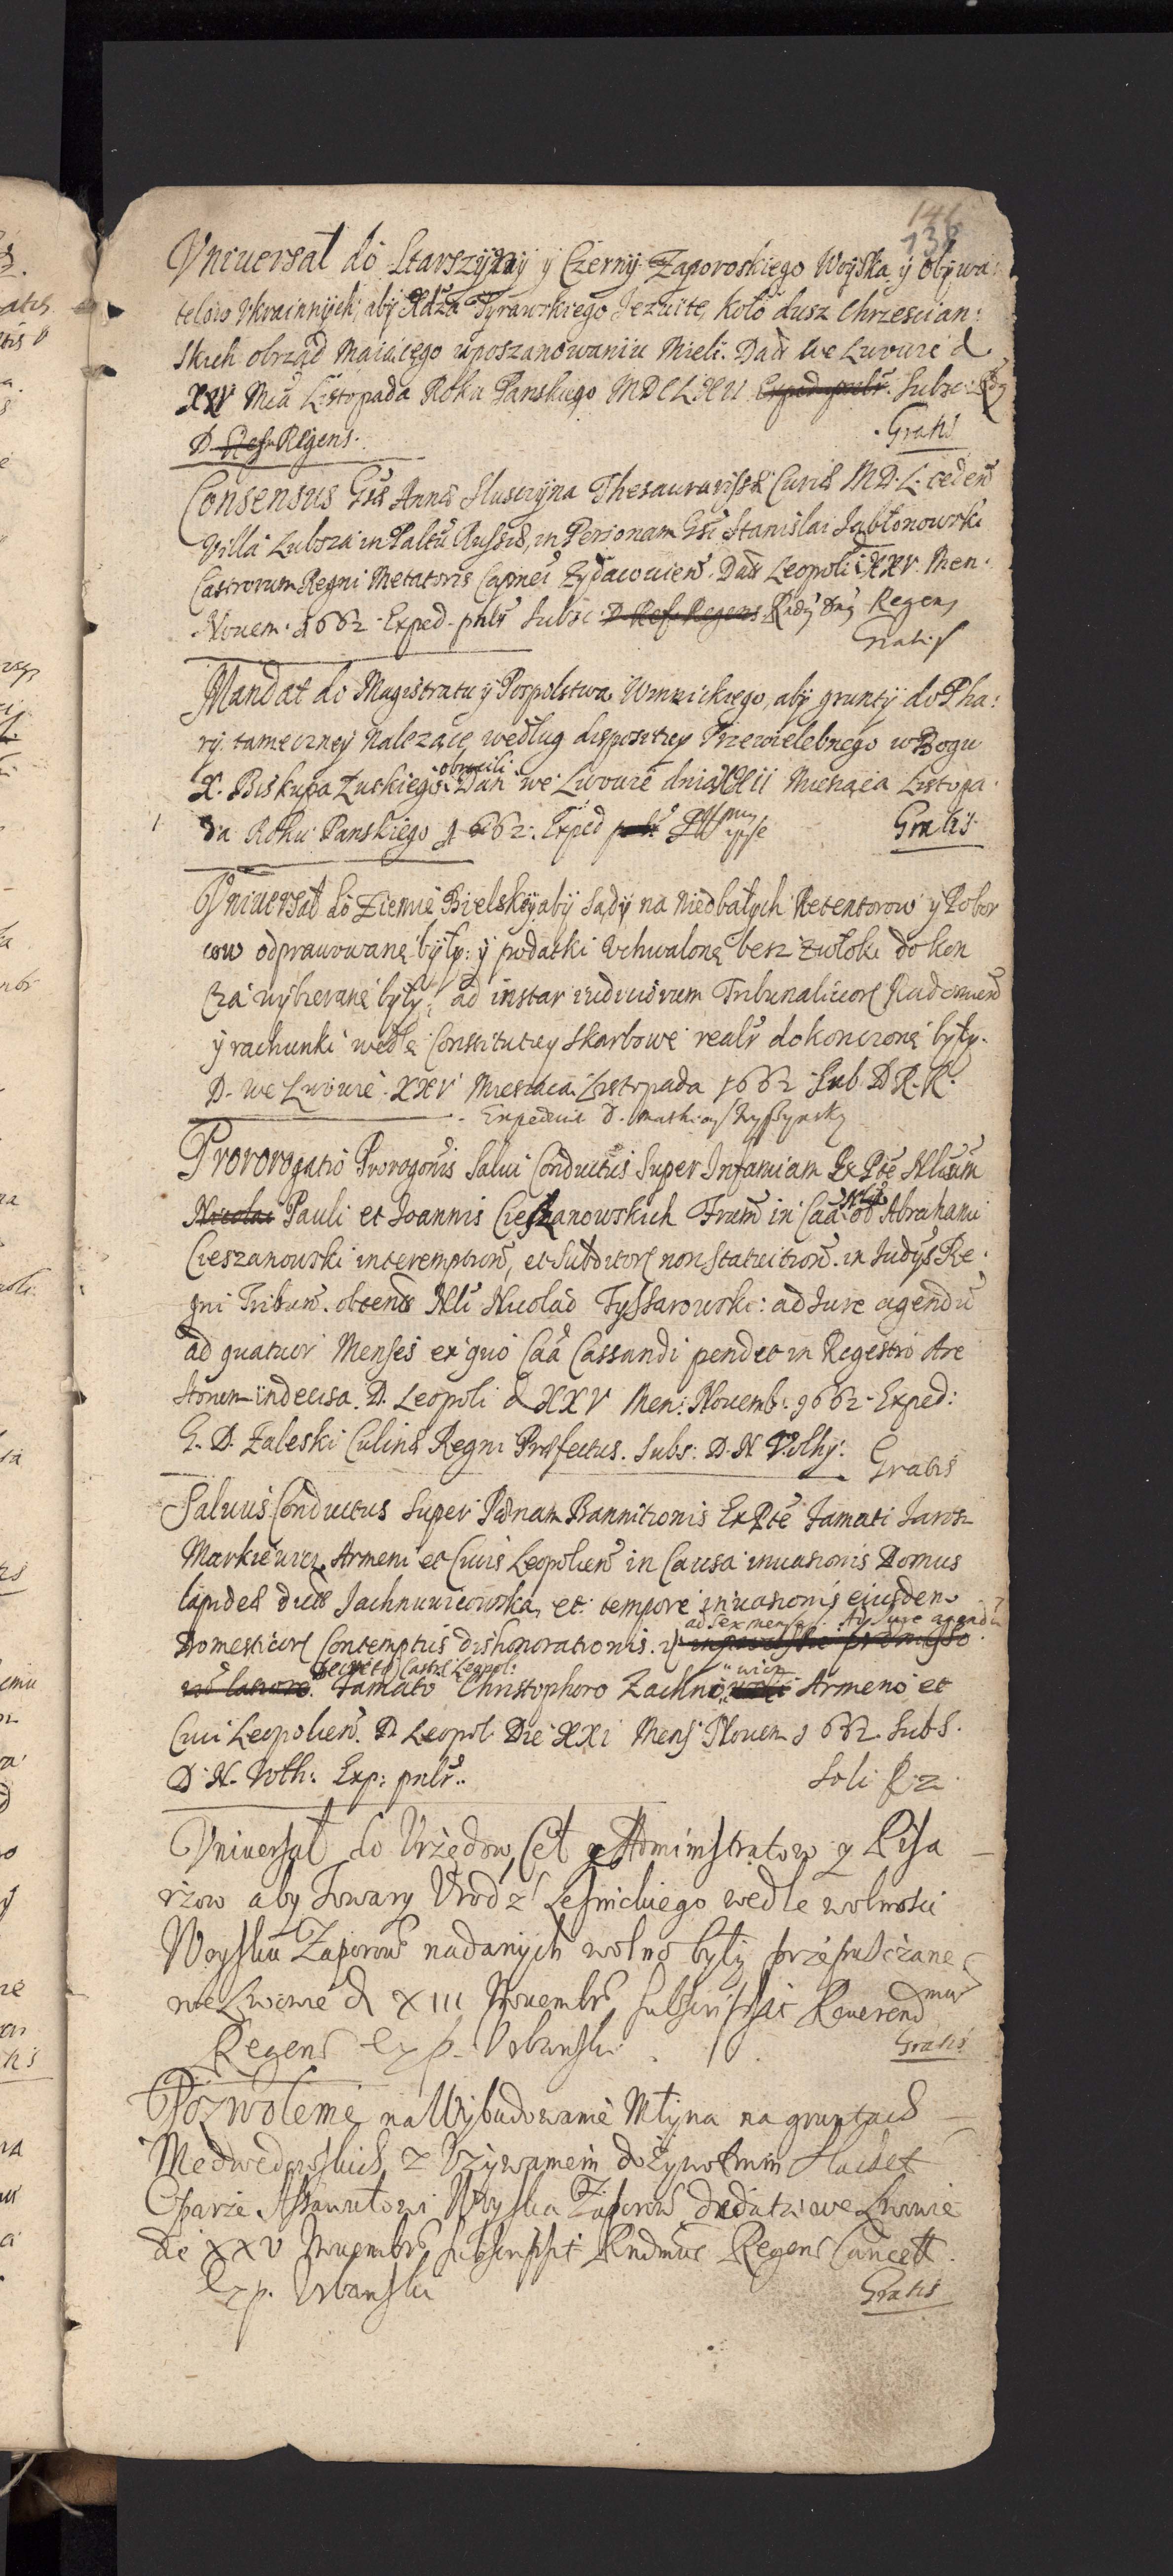 146
136
Vniuersał do Starszyzny y Czerny Zaporoskiego Woyska y Obywa:
telow Vkrainnych, aby Xdza Tyrawskiego Jezuite, koło dusz Chrzescian:
skich obrząd Maiącego uposzanowaniu Mieli. Dań we Lwowie d
XXV Mca Listopada Roku Panskiego MDCLXII Exped. pnlr. Subsc:
D. Ref. Regens. Gratis
Consensus Gsae Annae Sluszczyna Thesaurarissae Curiae M.D.L. ceden̄
Villa Lubsza in Paltū Russiae, in Personam Gsi Stanislai Jabłonowski
Castrorum Regni Metatoris Capnei Zydaczouien̄. Dań Leopoli d XXV Men.
Nouem. 1662. Exped. pnlr Subsc. D. Ref. Regens Regens
Gratis
Mandat do Magistratu y Pospolstwa Winnickiego, aby grunty do Pha:
ry tameczney Nalezące, według disposicyey Przewielebnego w Bogu
X. Biskupa Łuckiego obrocili Dań we Lwowie dnia XXII Miesiąca Listopa
da Roku Panskiego 1662. Exped pnlr ipse Gratis
Vniuersał do Ziemie Bielskiy aby Sądy na Niedbałych Retentorow y Pobor
cow odprawowane były: y podatki Vchwalone besz zwłoki do kon
cza wybierane były, ad instar iudiciorum Tribunalitior Radomien̄
y rachunki wedle Constitutiey Skarbowe realr dokonczone były.
D. we Lwowie. XXV Miesiąca Listopada 1662 Sub D R. K.
Expedivit D.
Prororogatio Prorogonis Salui Conductus Super Infamiam Ex Pte Nlium
Nicolai Pauli et Joannis Cieszanowskich Frum̄ in Caā Nlis ob Abrahami
Cieszanowski interemptione, et Subditor non Statuition̄. in Judys Re:
gni Tribun̄. obtend Nli Nicolao Tyssarowski: ad Jure agendū
ad quatuor Menses ex quo Caā Cassandi pendet in Regestro Are
storum indecisa. D. Leopoli d XXV Men: Nouemb. 1662. Exped:
G. D. Zaleski Culinae Regni Praefectus. Subs: D. N. Wolhy. Gratis
Saluus Conductus Super Paenam Bannitionis Ex Pte Famati Jarosz
Markiewicz Armeni et Ciuis Leopolien̄ in Causa inuasionis Domus
lapideae dictae Jachnuwicowska, et tempore inuasionis eiusdem
ad sex menses. Ad Jure agendū
Domesticor Contemptus dishonorationis.
Decreto Castr. Leopol:
Famato Christophoro Zachnowicz Armeno et
Ciui Leopolien̄. D Leopol Die XXI Mens Nouem 1662. Subs.
D. N. Wolh: Exp: pnlr. Soli R. 2
Vniuersał do Vrzędow, Ceł y Administratow y Pisa
rzow aby Towary Vrodz Lesnickiego wedle wolnosci
Woysku Zaporow nadanych wolno były przepusczane
we Lwowie d XIII Nouembr subscripsit Reuerendmus
Regens Exp. Vrbanski Gratis
Pozwolenie na Wybudowanie Młyna na gruntach
Medwedowskich z Vzywaniem dozywotnim
Assawułowi Woyska Zaporow we Lwowie
die XXV Nouembr subscripsit Rndmus Regens Cancell.
Exp. Vrbanski Gratis